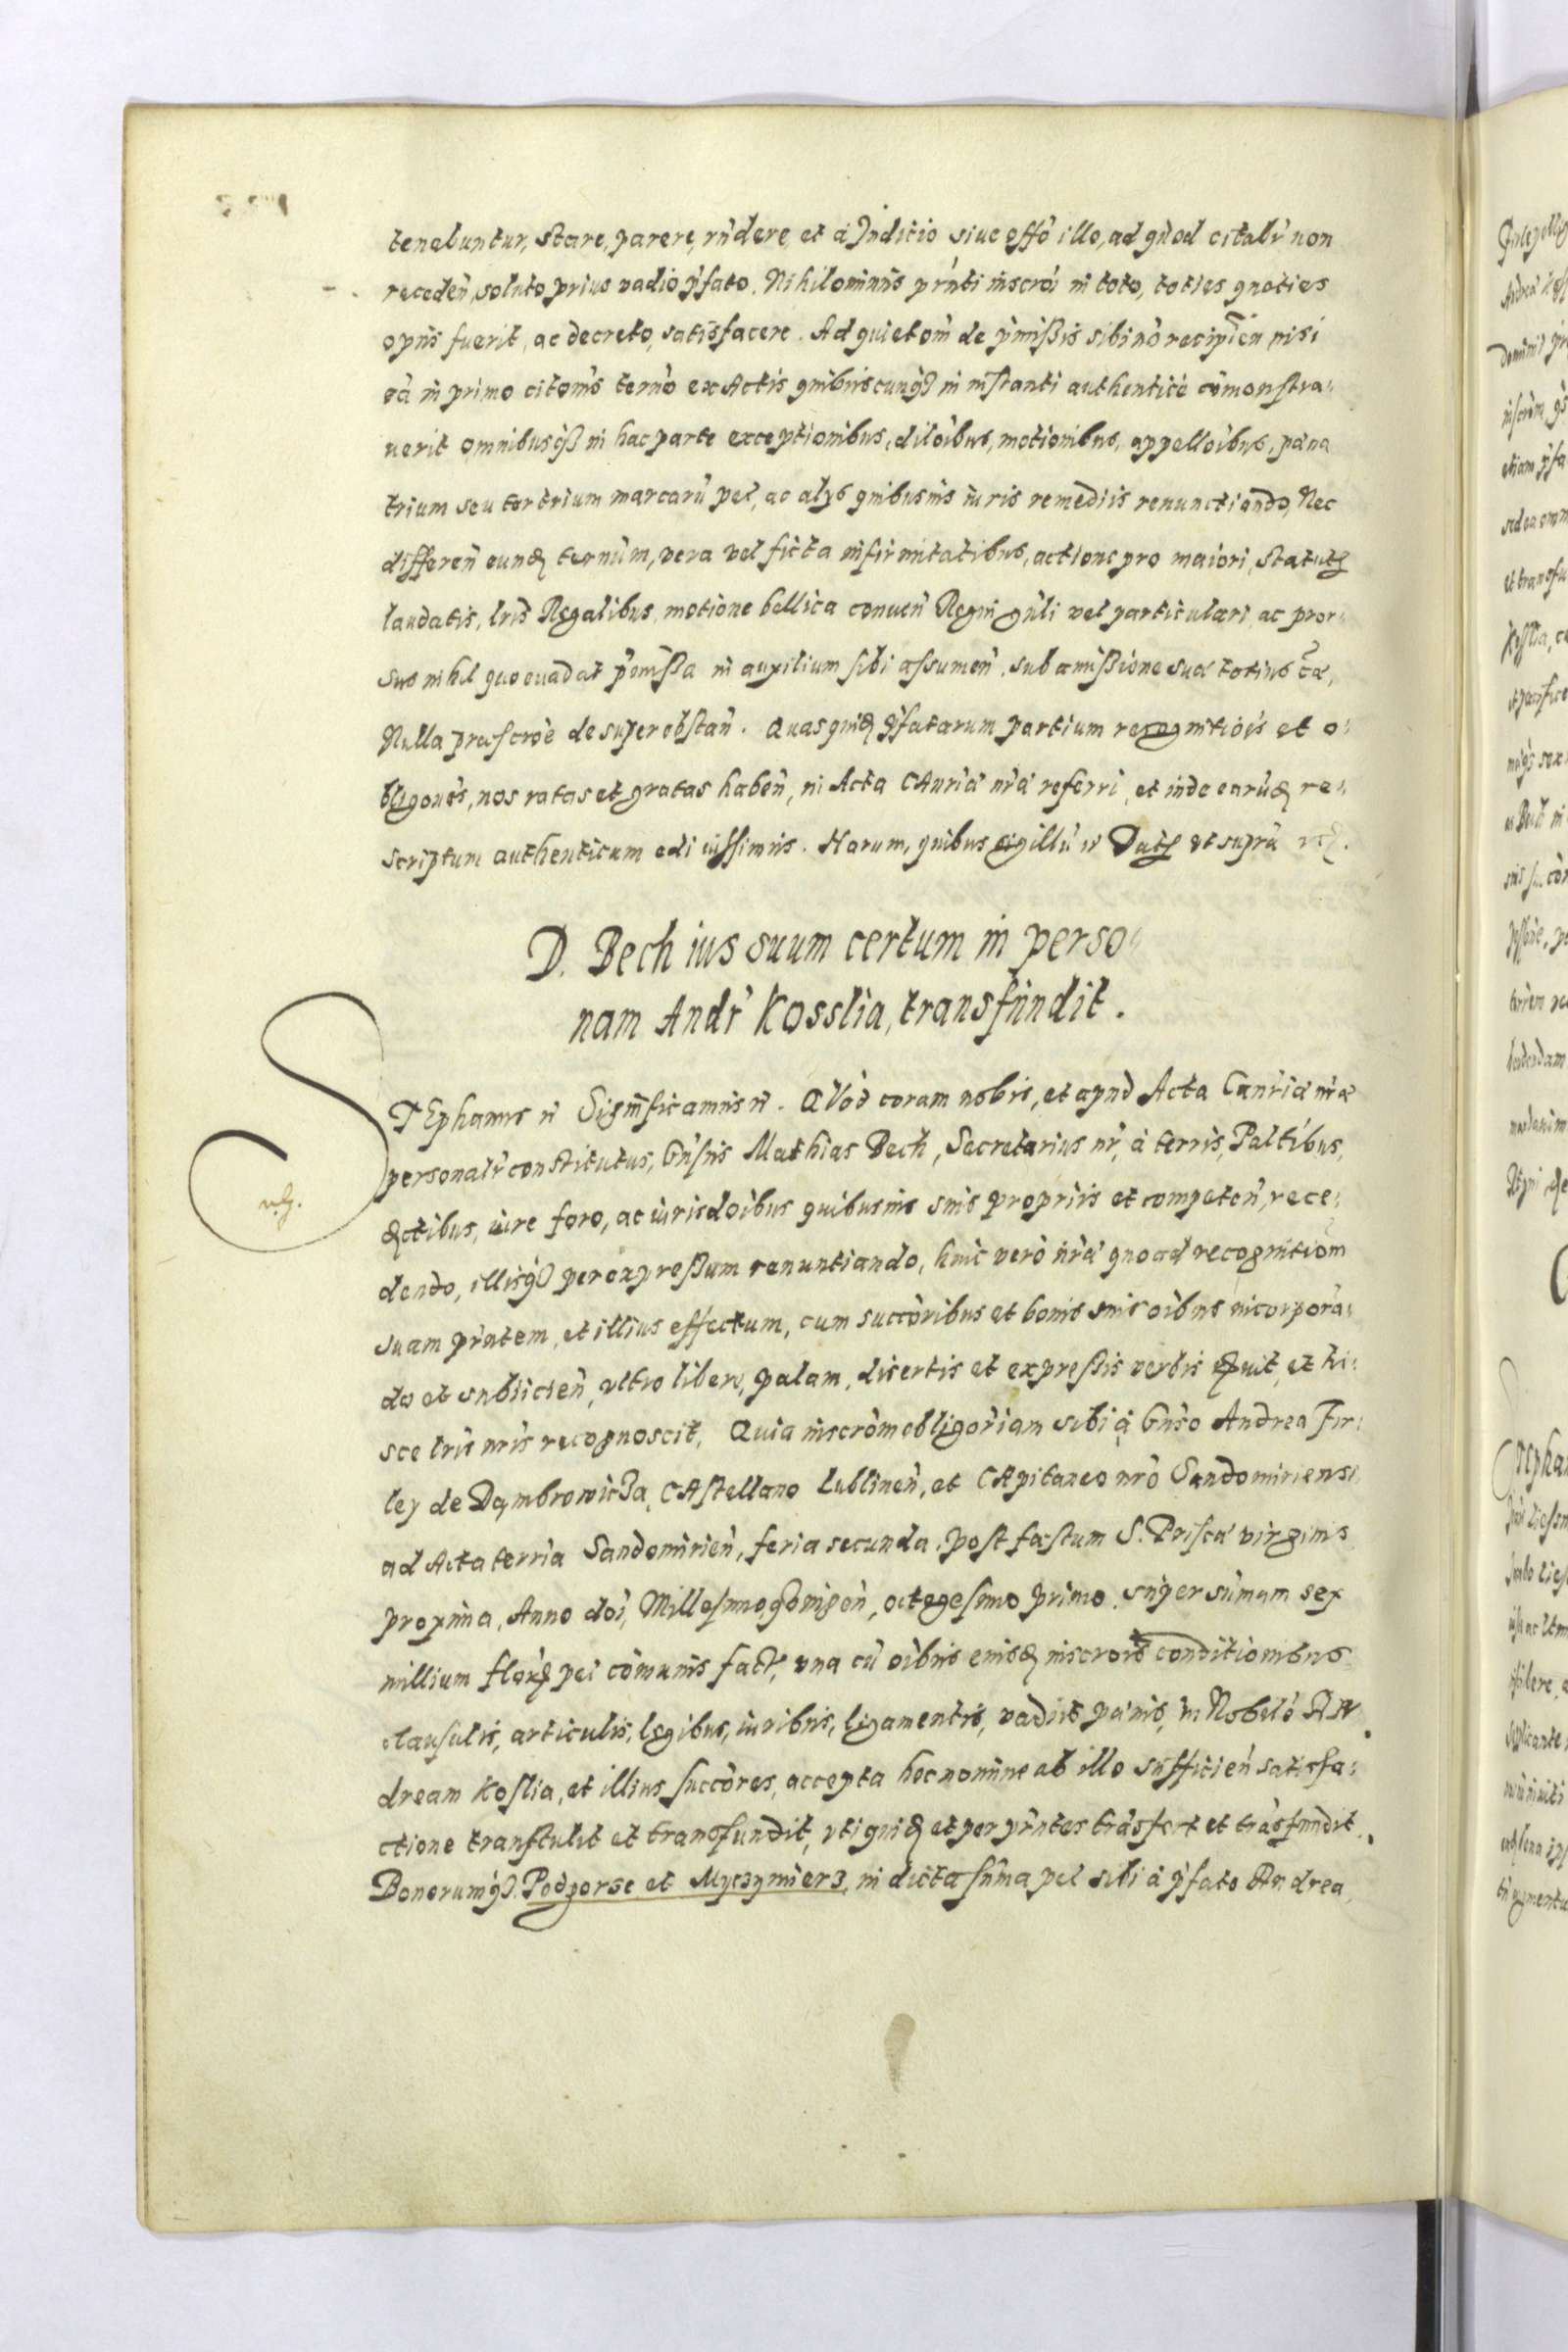 tenebuntur, stare, parere, rñdere, et à Juditio siue offõ illo, ad quod citabr̃ non
receden̄, soluto prius vadio p̃fato. Nihilominus pr̃nti inscrõi in toto, toties quoties
opus fuerit, ac decreto, satisfacere. Ad quietom̃ de p̃mißis sibi nõ recipien̄ nisi
eã in primo citom̃s termõ ex Actis quibuscunqȝ in instanti authentice cõmonstra-
uerit omnibusqȝ in hac parte exceptionibus, dilõibus, motionibus, appellõibus, pæna
trium seu ter trium marcarũ pec, ac alijs quibusuis iuris remediis renunctiando, Nec
differen̄ eundē termũm, vera vel ficta infirmitatibus, actione pro maiori, statutȩ
laudatis, lr̃is Regalibus, motione bellica conuen̄ Regni gñli vel particulari, ac pror-
sus nihil quo euadat p̃mißa in auxilium sibi assumen̄. sub amißione suæ totius cæ,
Nulla præscrõe desuper obstan̄. Quasquidē p̃fatarum partium recognitiões et o-
bligonẽs, nos ratas et gratas haben̄, in Acta CAnriæ nr̃æ referri, et inde earũdē re-
scriptum authenticum edi iussimus. Harum, quibus sigillũ ñ Datȩ vt supra
D. Bech ius suum certum in perso-
nam Andr̃ Kosslia, transfundit.
STEphanus ñ Significamus ñ. QVod coram nobis, et apud Acta Canriæ nr̃æ
personalr̃ constitutus, Gñsus Mathias Bech, Secretarius nr̃, à terris, Paltibus,
dictibus, iure foro, ac iurisdõibus quibusuis suis propriis et competen̄, rece-
dendo, illisqȝ per expreßum renuntiando, huic verò nr̃æ quoad recognitiom̃
suam pr̃ntem, et illius effectum, cum succõribus et bonis suis oĩbus incorporã-
do et subiicien̄, vltro libere, palam, disertis et expreßis verbis dixit, et hi-
sce lr̃is nr̃is recognoscit, Quia inscrõm obligõriam sibi à Gñso Andrea Fir-
ley de Dąmbrowicza, CAstellano Lublinen̄, et CApitaneo nr̃o Sandomiriensi
ad Acta terriæ Sandomirien̄, feria secunda post festum S. Priscæ virginis
proxima, Anno doĩ, Millesimo qũingen̄, octogesimo primo. super sũmam sex
millium florȩ pec cõmunis fact, vna cũ oĩbus eiusdē inscrõis conditionibus
clausulis, articulis, legibus, iuribus, ligamentis, vadiis pænis, in Nobelẽ AN
dream Koslia, et illius succõres, accepta hoc nomine ab illo sufficien̄ satisfa-
ctione transtulit et transfundit, vti quidē et per pr̃ntes trãsfert et trãsfundit.
Bonorumqȝ. Podgorse et Myczymierz, in dicta sũma pec sibi à p̃fato Andrea